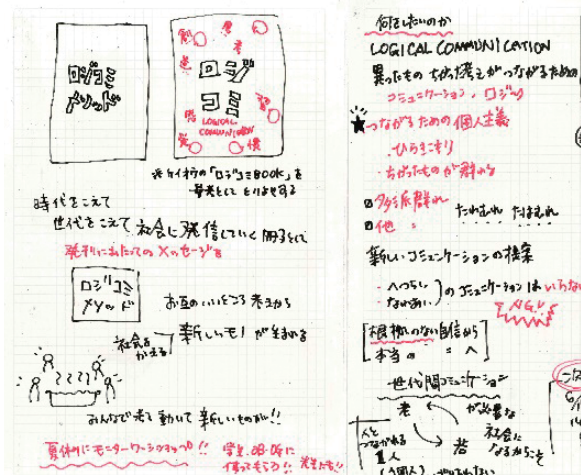 ロジコミ
メソッド
ロジ
コミ
LOGICAL
COMMUNICATION
※ケイオウの「ロジコミBOOK」を
参考として とりよせする
時代をこえて
世代をこえて 社会に発信していく 冊子として
発刊にあたってのメッセージを
ロジコミ
メソッド
お互のいいところ 考えから
社会を
かえる
新しいモノ が生まれる
みんなで考え 動いて 新しいものが!!
夏休みにモニターワークショップ!! 学生.OB.OGに
何をしたいのか
LOGICAL COMMUNICATION
異ったもの ちがった考えがつながるための
コミュニケーション.ロジック
つながるための個人主義
・ひらきこもり
・ちがったものが群れる
多派群れ
他
新しいコミュニケーションの提案
・へつらい
・なれあい
のコミュニケーションは いらない
N.G.!
根拠のない自信から
本当の 〃 〃 へ
世代間コミュニケーション
老
若
が必要な
社会に
なるからこそ
人と
つながれる